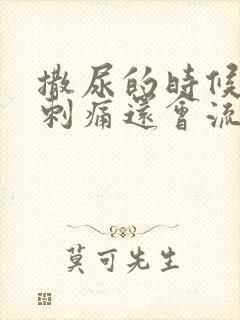 撒尿的時候
刺痛還會流
莫可先生